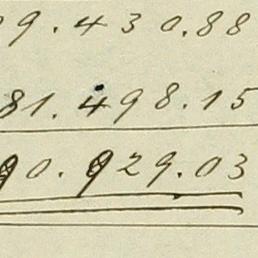 09.430.88
81.498.15
90.929.03